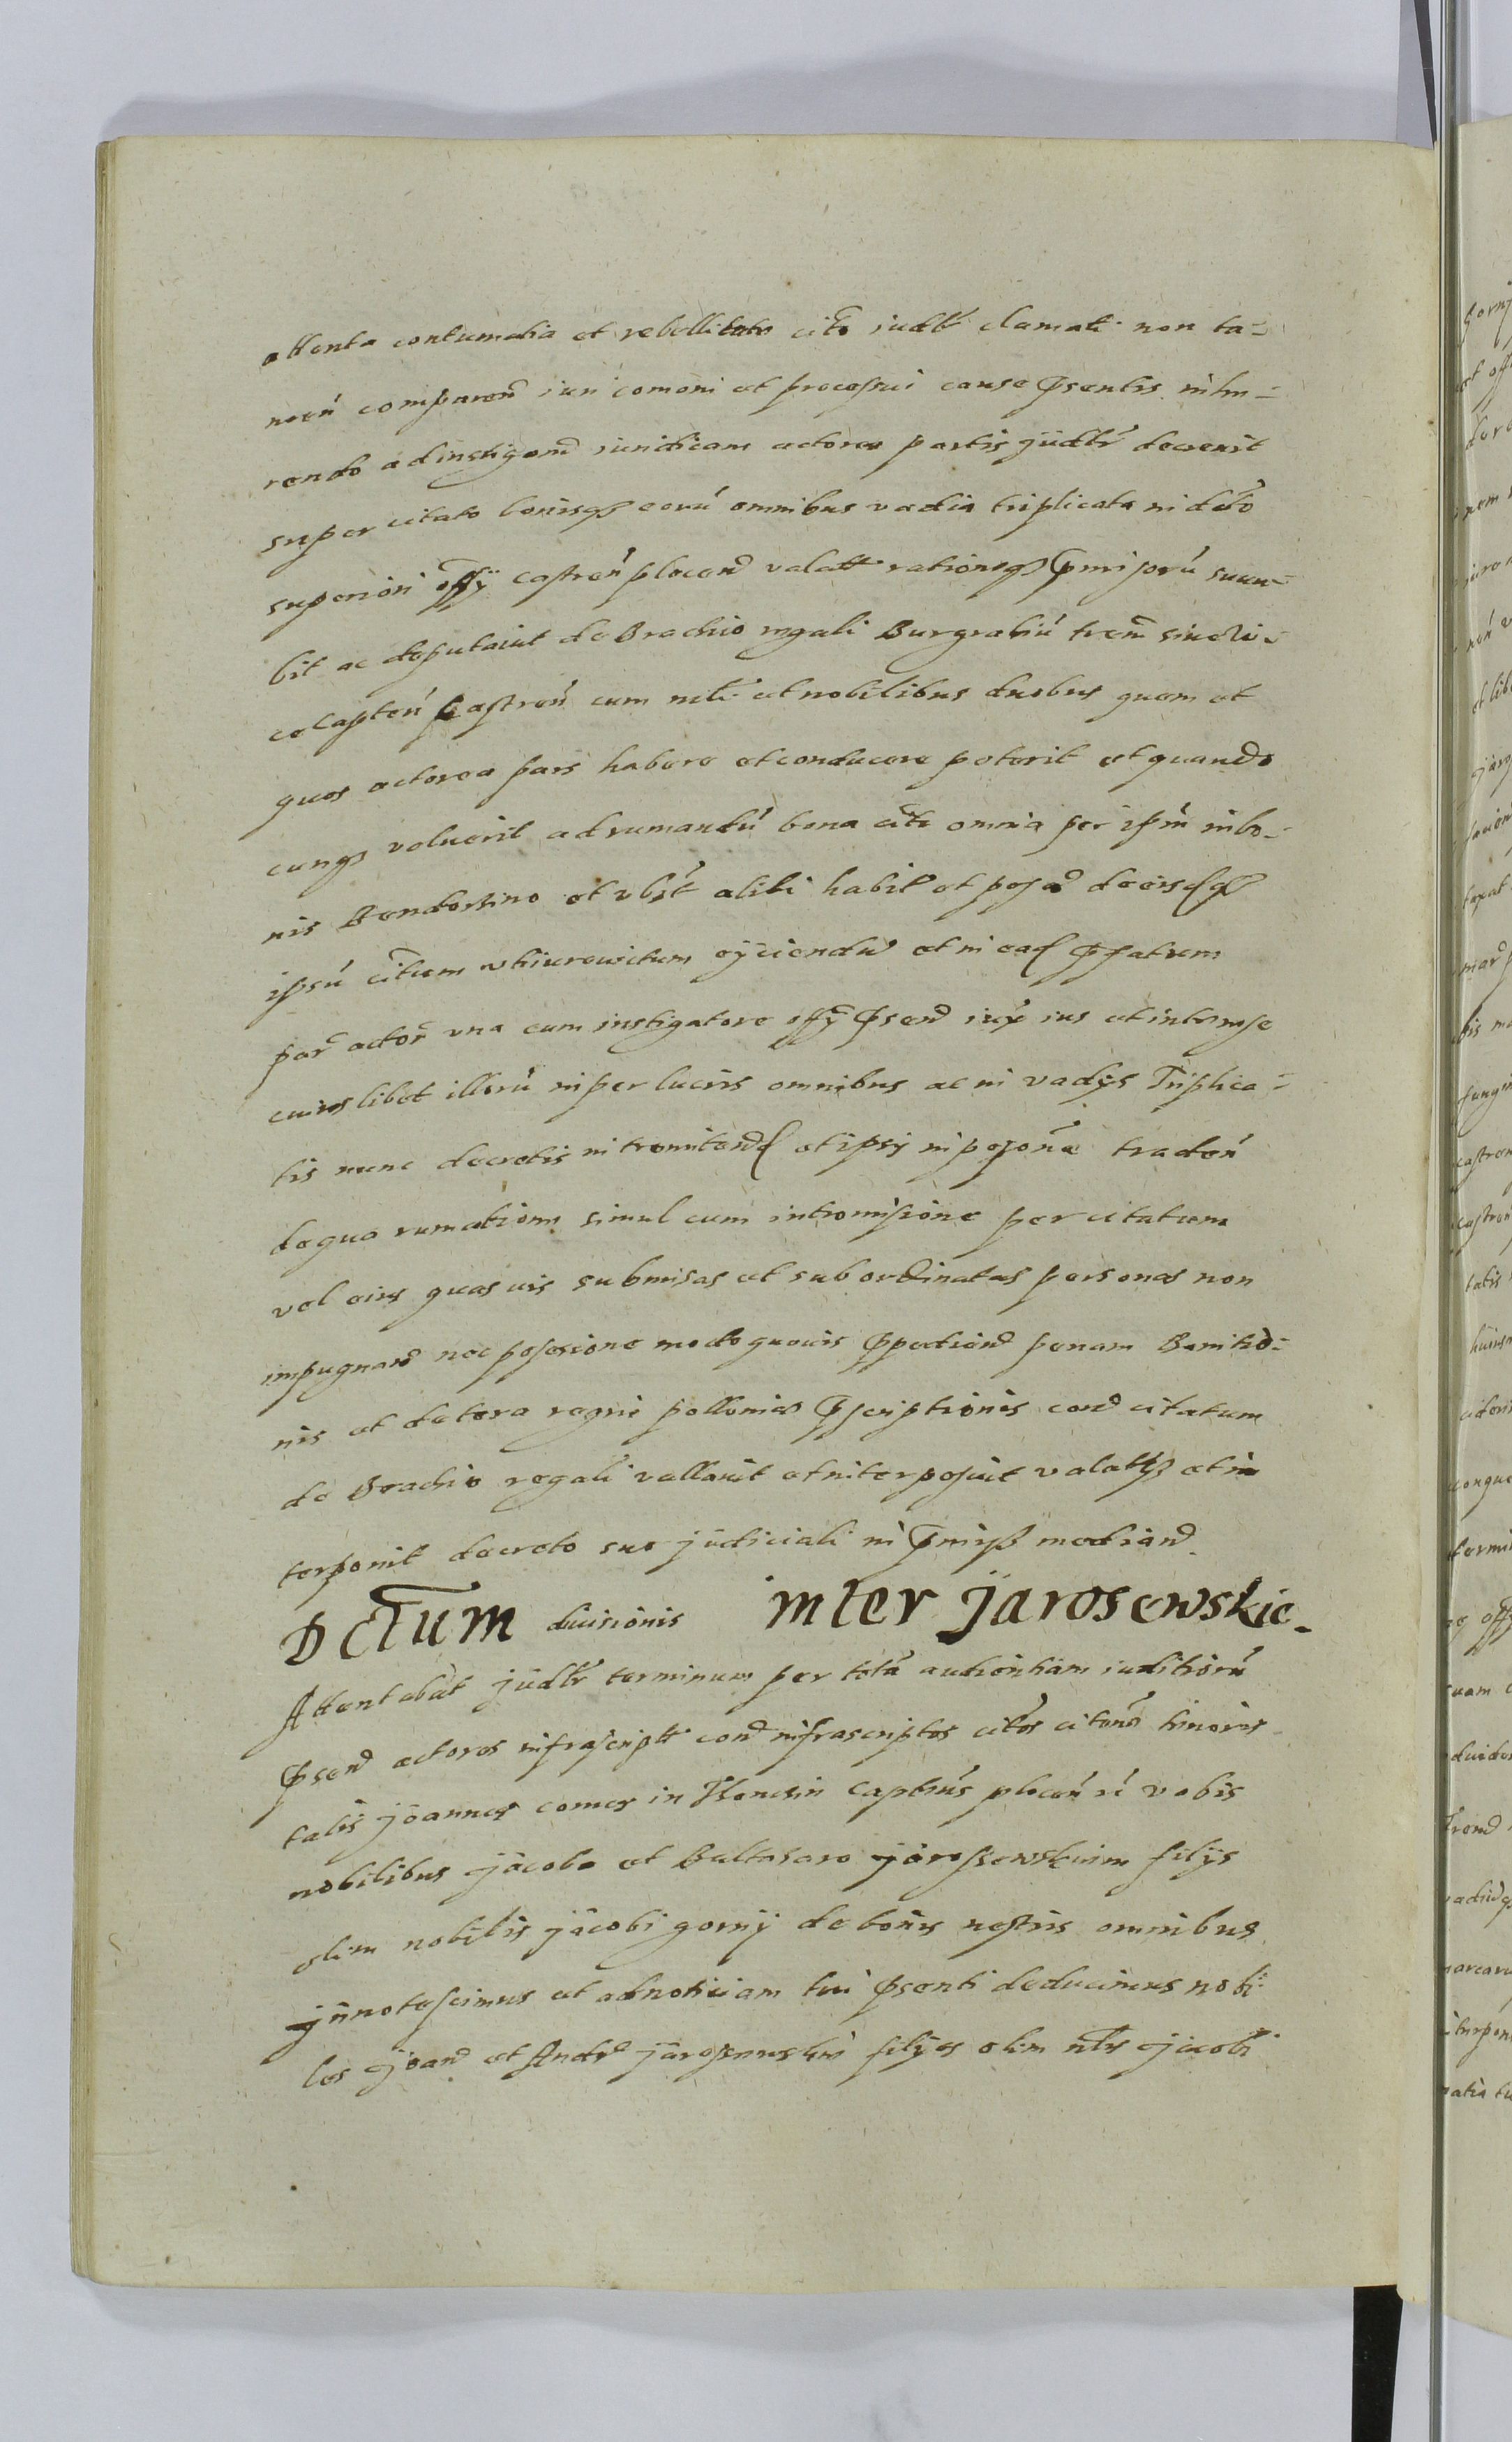 attenta contumatia et rebellitate cito iudlr clamati non ta-
men comparen iuri comoni et procesui cause psentis inhe-
rendo ad instigem iuridicam actorea partis judlr decrevit
super citato bonisq eorū omnibus vadia triplicata in dcto
superiori offi castren plocen valatt rationeq pmisorū suum-
bit ac deputavit de Brachio regali Burgrabiū tren sive vi-
cecapten castren cum mtli et nobilibus duobus quem et
quos actorea pars habere et conducere poterit et quando
cunq voluerit ad rumandū bona cite omnia per ipm in bo-
nis Bendorzino et vbit alibi habit et posa de eisdq
ipsū citum vti iurevictum eyciendū et in ead pfatum
par actor vna cum instigatore offi psen iux ius et interesse
cuius libet illorū in per lucris omnibus ac in vadys Triplica-
tis nunc decretis intromitend et ipsi in posone traden
de qua rumatione simul cum intromisione per citatum
vel eius quas uis submisas et subordinatas personas non
impugnan nec posesione modo quouis ppedien penam Banitio-
nis et de tera regni pollonia pscriptionis con citatum
de Brachio regali vallavit et interposuit valattq et in
terponit decreto suo judiciali in pmiss median
Dctum divisionis inter jarosewskie.
Attentabat judlr terminum per totā audientiam iuditiorū
psen actores infrascriptt con infrascriptos citos citone tenoris
talis joannes comes in capteus plocen vobis
nobilibus jacobo et Baltasaro jarossewskim filys
olim nobilis jacobi gorny de bonis nestris omnibus
jnnotescimus et ad noticiam tni psenti deducimus nobi
les joan et Andr jarossewskim filyes olim nlis jacobi